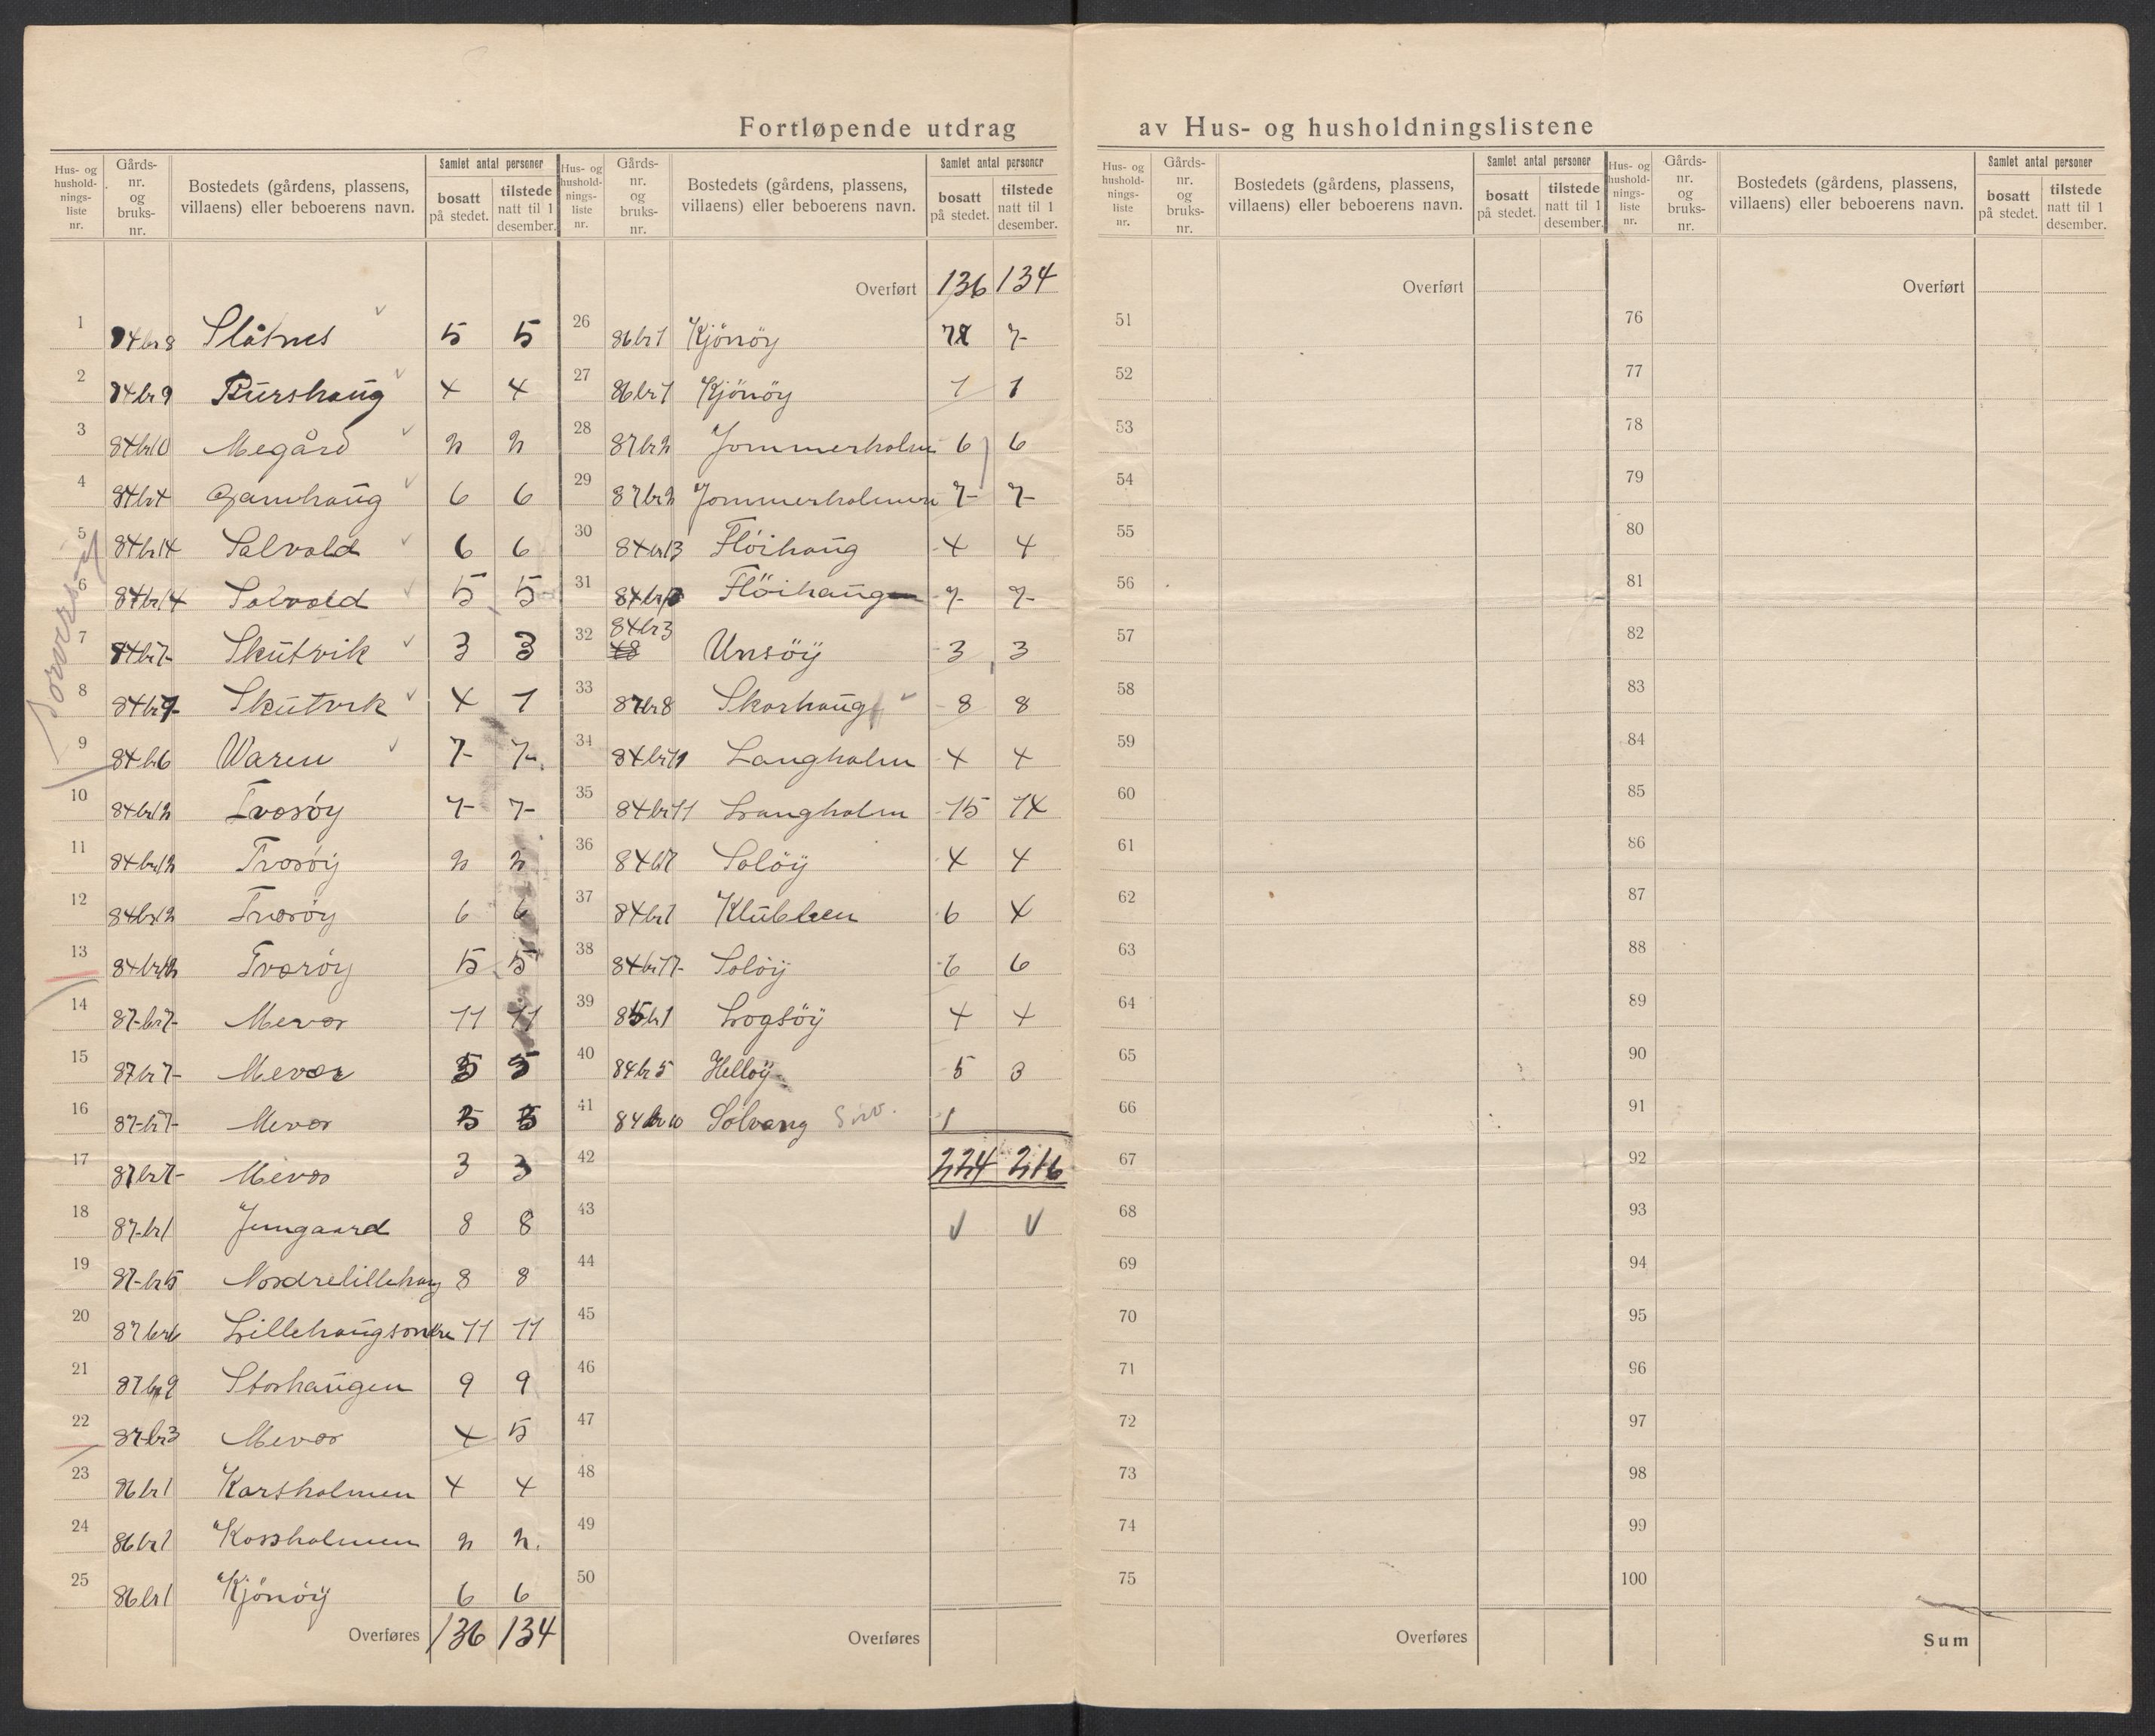 Fortløpende utdrag av Hus- og husholdningslistene
Hus- og hushold-nings-liste nr. Gårds-nr. og bruks-nr. Bostedets (gårdens, plassens, villaens) eller beboerens navn. Samlet antal personer bosatt på stedet. tilstede natt til 1 desember.
1 84 br 8 Slåtnes 5 5
2 84 br 9 Burshaug 4 4
3 84 br 10 Megård 2 2
4 84 br 4 Gamhaug 6 6
5 84 br 14 Solvold 6 6
6 84 br 14 Solvold 5 5
7 84 br 7 Skutvik 3 3
8 84 br 7 Skutvik 4 1
9 84 br 6 Waren 7 7
10 84 br 12 Tværöy 7 7
11 84 br 12 Tværöy 2 2
12 84 br 12 Tværöy 6 6
13 84 br 12 Tværöy 5 5
14 87 br 7 Mevær 11 11
15 87 br 7 Mevær 5 5
16 87 br 7 Mevær 5 5
17 87 br 7 Mevær 3 3
18 87 br 1 Jemgaard 8 8
19 87 br 5 Nordrelillehaug 8 8
20 87 br 6 Lillehaugsondre 11 11
21 87 br 9 Storhaugen 9 9
22 87 br 3 Mevær 4 5
23 86 br 1 Korsholmen 4 4
24 86 br 1 Korsholmen 2 2.
25 86 br 1 Kjönöy 6 6
Overføres 136 134
Hus- og hushold-nings-liste nr. Gårds-nr. og bruks-nr. Bostedets (gårdens, plassens, villaens) eller beboerens navn. Samlet antal personer bosatt på stedet. tilstede natt til 1 desember.
Overført 136 134
26 86 br 1 Kjönöy 7
27 86 br 1 Kjönöy 1 1
28 87 br 2 Jommerholm 6 6
29 87 br 2 Jommerholmen 7 7
30 84 br 13 Flöihaug 4 4
31 84 br Flöihaugen 7 7
32 84 br 3 Unsöy 3 3
33 87 br 8 Skarhaug 8 8
34 84 br 11 Langholm 4 4
35 84 br 11 Langholm 15 14
36 84 Solöy 4 4
37 84 br 1 Klubben 6 4
38 84 br 17 Solöy 6 6
39 85 br 1 Logsöy 4 4
40 84 br 5 Hellöy 5 3
41 84 br 10 Solvang 1
42 224 216
43
44
45
46
47
48
49
50
Overføres
Hus- og hushold-nings-liste nr. Gårds-nr. og bruks-nr. Bostedets (gårdens, plassens, villaens) eller beboerens navn. Samlet antal personer bosatt på stedet. tilstede natt til 1 desember.
Overført
51
52
53
54
55
56
57
58
59
60
61
62
63
64
65
66
67
68
69
70
71
72
73
74
75
Overføres
Hus- og hushold-nings-liste nr. Gårds-nr. og bruks-nr. Bostedets (gårdens, plassens, villaens) eller beboerens navn. Samlet antal personer bosatt på stedet. tilstede natt til 1 desember.
Overført
76
77
78
79
80
81
82
83
84
85
86
87
88
89
90
91
92
93
94
95
96
97
98
99
100
Sum